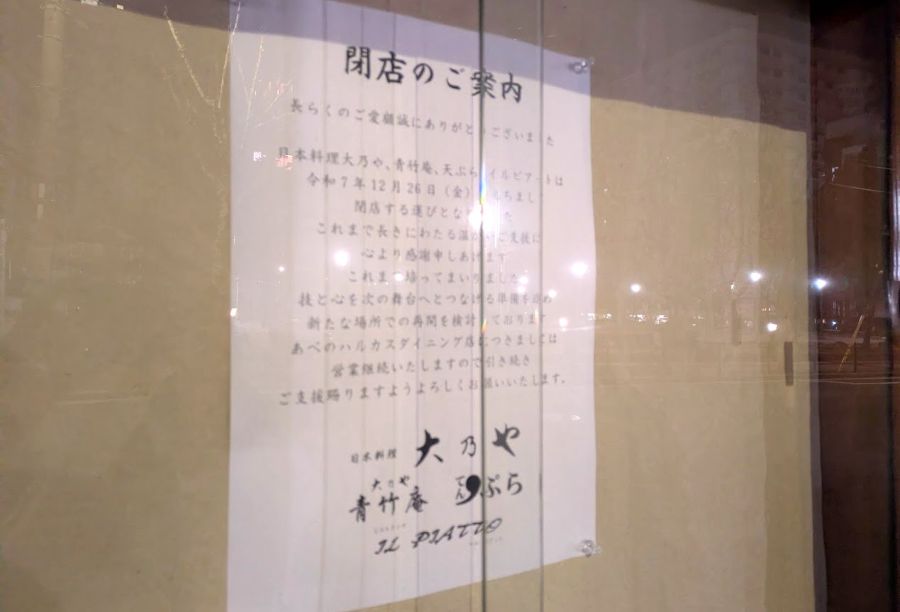 閉店のご案内
長らくのご愛顧誠にありがとうございました
日本料理大乃や、青竹庵、天ぷら、イルピアートは
令和7年12月26日（金）をもちまして
閉店する運びとなりました
これまで長きにわたる温かいご支援に
心より感謝申しあげます
これまで培ってまいりました
技と心を次の舞台へとつなげる準備を進め
新たな場所での再開を検討しております
あべのハルカスダイニング店につきましては
営業継続いたしますので引き続き
ご支援賜りますようよろしくお願いいたします。
日本料理 大乃や
大乃や
青竹庵 てんぷら
IL PIATTO